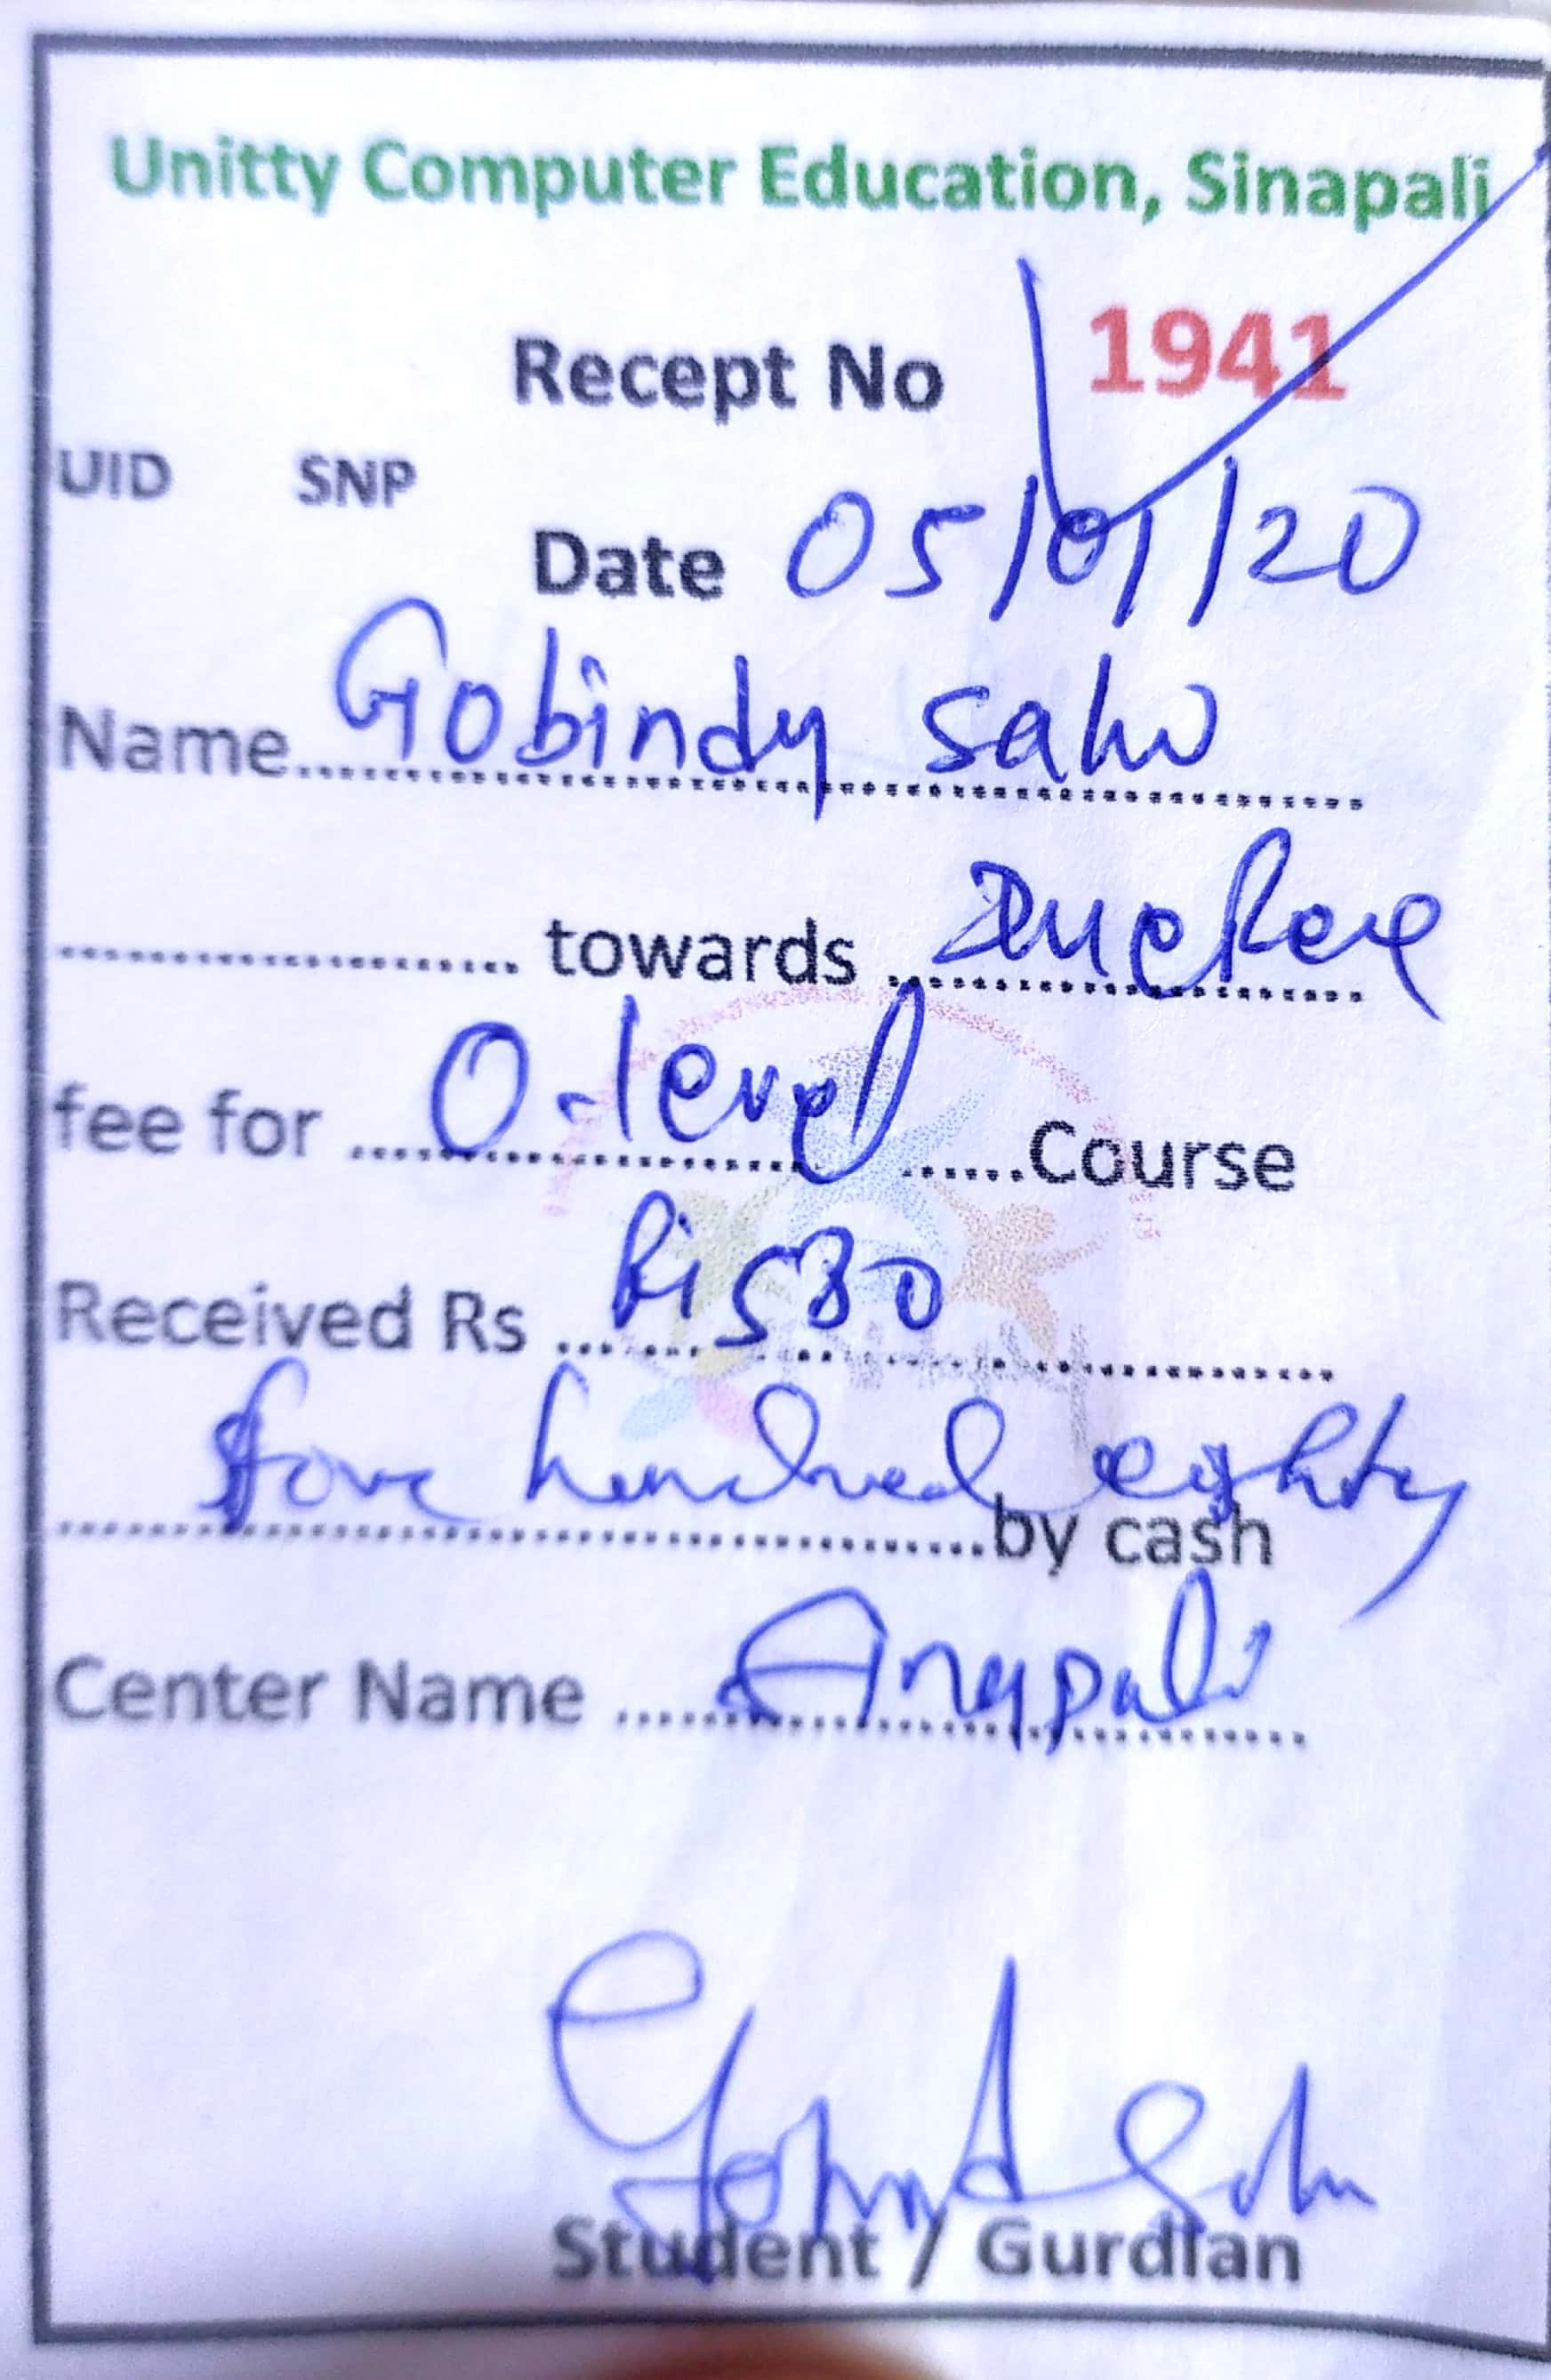 Unitty Computer Education, Sinapali
Recept No 1941
UID SNP
Date 05/01/20
Name Gobinda Sahu
towards
fee for O-level Course
Received Rs Rs 580
five hundred eighty by cash
Center Name Sinapali
Student / Gurdian